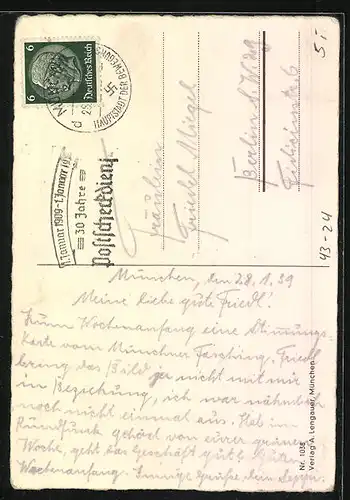 6 Deutsches Reich 6
HAUPTSTADT DER BEWEGUNG
1. Januar 1909-1. Januar 19
30 Jahre
Postscheckdienst
Fräulein
Friedel Miegel
Berlin
43-24
München, den 28.1.39
Meine liebe gute Friedl!
Zum Wochenanfang eine Stimmungs-
karte vom Münchner Fasching. Friedl
bring das Bild ja nicht mit mir
in Beziehung, ich war nähmlich
noch nicht einmal aus. Hab im
Rundfunk gehört von eurer grünen
Woche, geht das Geschäft gut?
Wochenanfang. Innige Grüsse dein Sepper
Nr. 1035
Verlag A. Lengauer, München